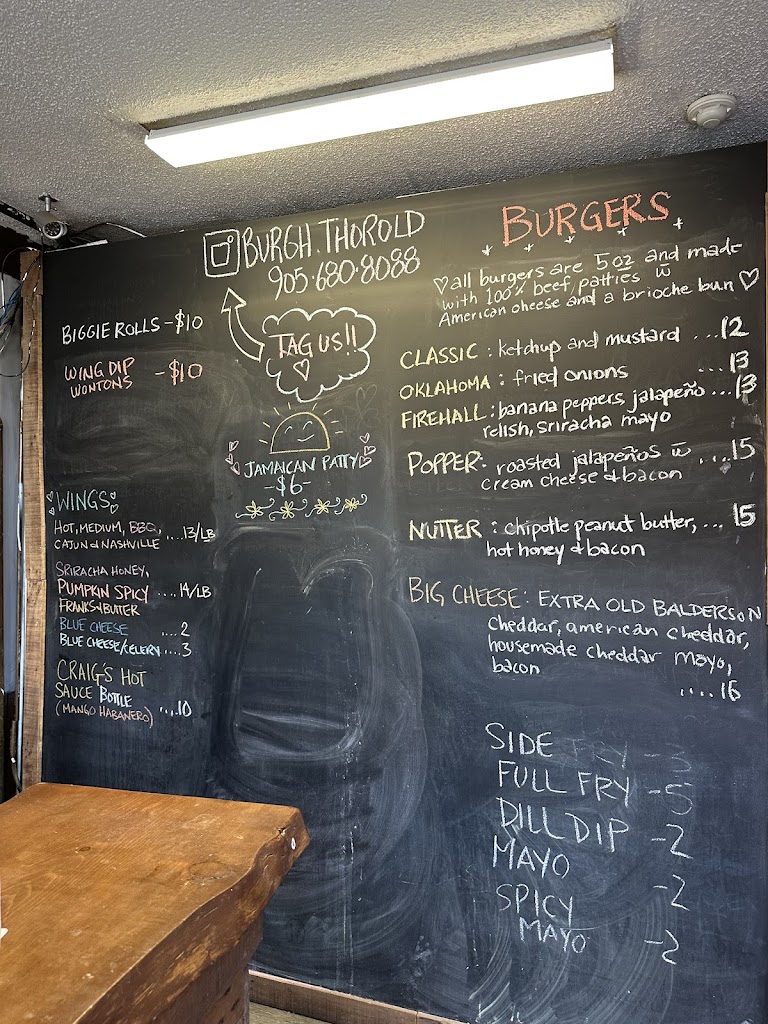 BURGH.THOROLD
905·680·8088
TAG US!!
BIGGIE ROLLS -$10
WING DIP
WONTONS -$10
JAMAICAN PATTY
-$6-
WINGS
HOT, MEDIUM, BBQ,
CAJUN & NASHVILLE ....13/LB
SRIRACHA HONEY,
PUMPKIN SPICY ....14/LB
FRANKS & BUTTER
BLUE CHEESE ....2
BLUE CHEESE/CELERY....3
CRAIG'S HOT
SAUCE BOTTLE
(MANGO HABANERO) ....10
BURGERS
all burgers are 5oz and made
with 100% beef, patties w
American cheese and a brioche bun
CLASSIC : ketchup and mustard ...12
OKLAHOMA : fried onions ...13
FIREHALL : banana peppers, jalapeño ...13
relish, sriracha mayo
POPPER: roasted jalapeños w ....15
cream cheese & bacon
NUTTER : chipotle peanut butter, ... 15
hot honey & bacon
BIG CHEESE : EXTRA OLD BALDERSON
cheddar, american cheddar,
housemade cheddar mayo,
bacon
....16
SIDE FRY -3
FULL FRY -5
DILL DIP -2
MAYO -2
SPICY
MAYO -2